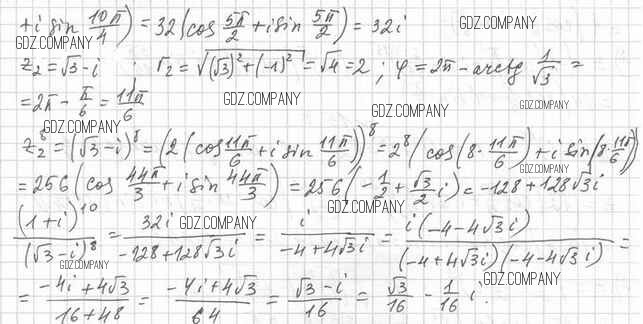 + i sin 10π/4) = 32(cos 5π/2 + i sin 5π/2) = 32i
GDZ.COMPANY
GDZ.COMPANY
z₂ = √3 - i ; r₂ = √((√3)² + (-1)²) = √4 = 2 ; φ = 2π - arctg 1/√3 =
= 2π - π/6 = 11π/6
GDZ.COMPANY
GDZ.COMPANY
GDZ.COMPANY
GDZ.COMPANY
z₂⁸ = (√3 - i)⁸ = (2(cos 11π/6 + i sin 11π/6))⁸ = 2⁸(cos(8·11π/6) + i sin(8·11π/6))
GDZ.COMPANY
= 256(cos 44π/3 + i sin 44π/3) = 256(-1/2 + √3/2 i) = -128 + 128√3i
GDZ.COMPANY
GDZ.COMPANY
(1+i)¹⁰/(√3-i)⁸ = 32i/(-128+128√3i) = i/(-4+4√3i) = i(-4-4√3i)/((-4+4√3i)(-4-4√3i)) =
GDZ.COMPANY
GDZ.COMPANY
= (-4i+4√3)/(16+48) = (-4i+4√3)/64 = (√3-i)/16 = √3/16 - 1/16 i.